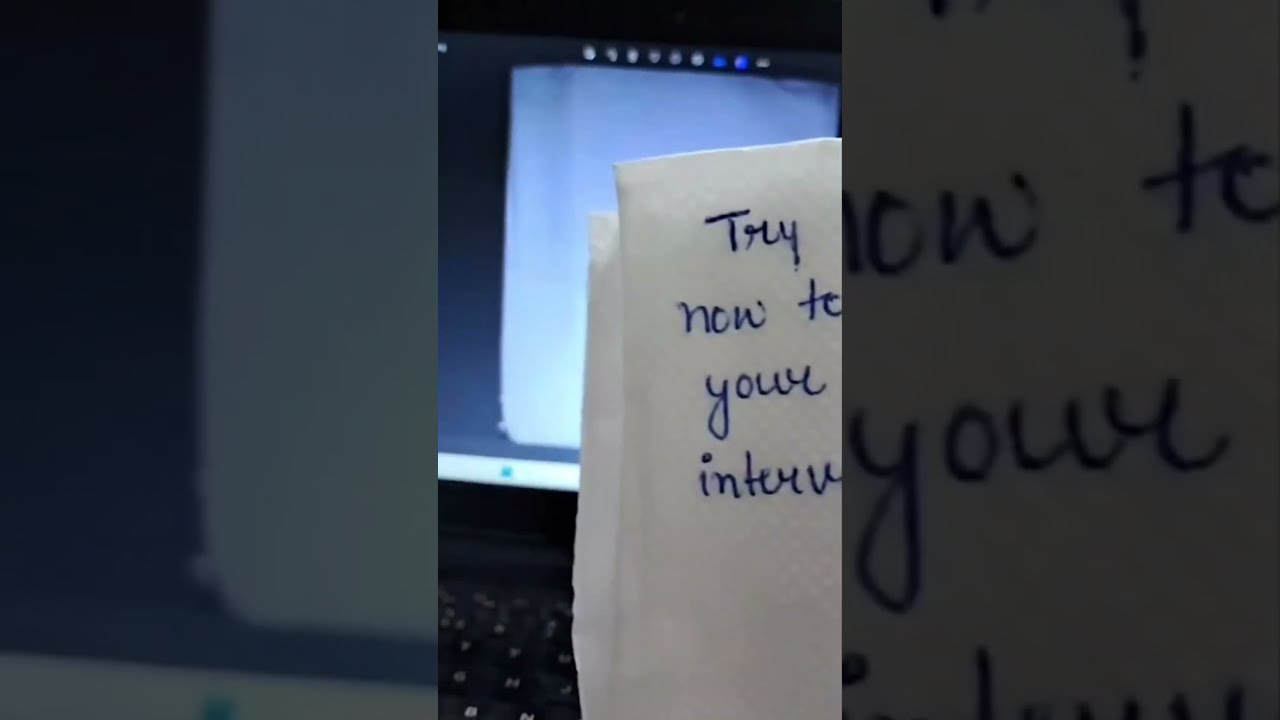 Try
now to
your
interv